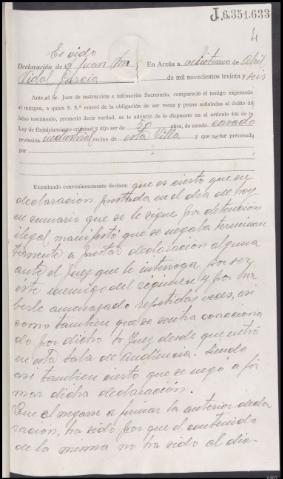 J.6.351.633
4
Oxido
Declaración de D. Juan Ant.
Vidal García
En Arzúa a de Abril
de mil novecientos treinta y seis
Ante el Sr. Juez de instrucción e infrascrito Secretario, compareció el testigo expresado
al margen, a quien S. S.ª enteró de la obligación de ser veraz y penas señaladas al delito de
falso testimonio, prometió decir verdad, se le advirtió de lo dispuesto en el artículo 446 de la
Ley de Enjuiciamiento criminal y dijo ser de años, de estado casado
profesión industrial vecino de esta Villa y que no fue procesado
por
Examinado convenientemente declara: que es cierto que en
declaración prestada en el día de hoy
en sumario que se le sigue por detención
ilegal manifestó que se negaba terminan
temente a prestar declaración alguna
ante el Juez que le interroga por ser
este enemigo del régimen y por ha
berle amenazado repetidas veces, así
como también que se sentía coacciona
do por dicho Juez desde que entró
en esta sala de audiencia. Siendo
así también cierto que se negó a fir
mar dicha declaración.
Que el negarse a firmar la anterior decla
ración, ha sido por que el contenido
de la misma no ha sido al dic-